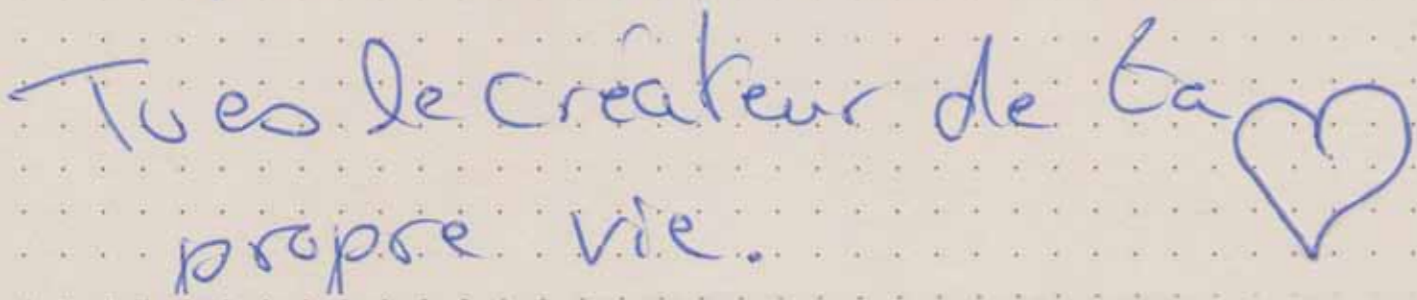 Tu es le créateur de ta
propre vie.